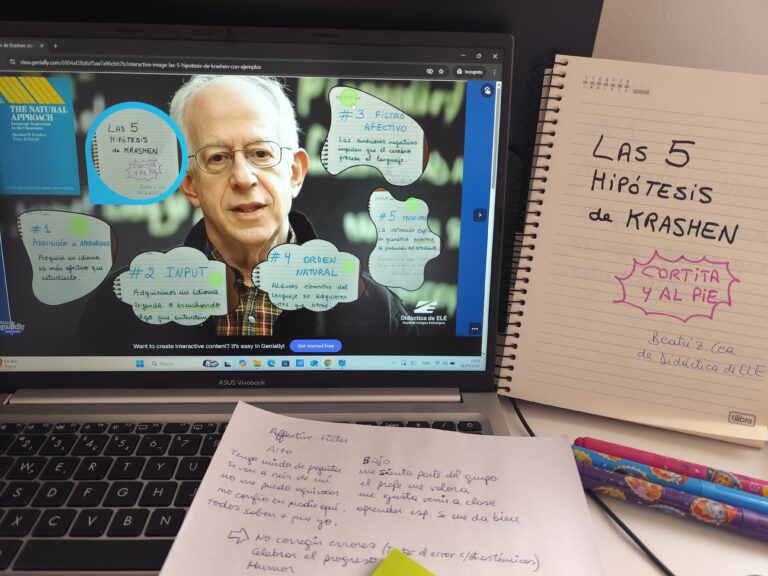 view.genially.com/
interactive-image-las-5-hipotesis-de-krashen-con-ejemplos
Incognito
THE NATURAL
APPROACH
Language Acquisition
in the Classroom
Stephen D. Krashen
Tracy D. Terrell
LAS 5
HIPÓTESIS
de KRASHEN
CORTITA
Y AL PIE
#3 FILTRO
AFECTIVO
Las emociones negativas
impiden que el cerebro
procese el lenguaje.
#1
Adquirir un idioma
es más efectivo que
estudiarlo.
#2 INPUT
Adquirimos un idioma
leyendo o escuchando
algo que entendemos
#4 ORDEN
NATURAL
ALGUNOS elementos del
lenguaje se adquieren
antes que otros
#5 MONITOR
La
de gramática
Didáctica de ELE
Español Lengua Extranjera
Genially
Want to create interactive content? It's easy in Genially!
Get started free
Buscar
ASUS Vivobook
LAS 5
HIPÓTESIS
de KRASHEN
CORTITA
Y AL PIE
Beatriz Cea
de Didáctica de ELE
tilibra
Affective Filter
Alto
Tengo miedo de preguntar
se van a reír de mí
no me puedo equivocar
no confío en nadie aquí.
todos saben + que yo.
Bajo
me siento parte del grupo
el profe me valora
me gusta venir a clase
aprender esp. se me da bien
No corregir errores
Celebrar el progreso
Humor